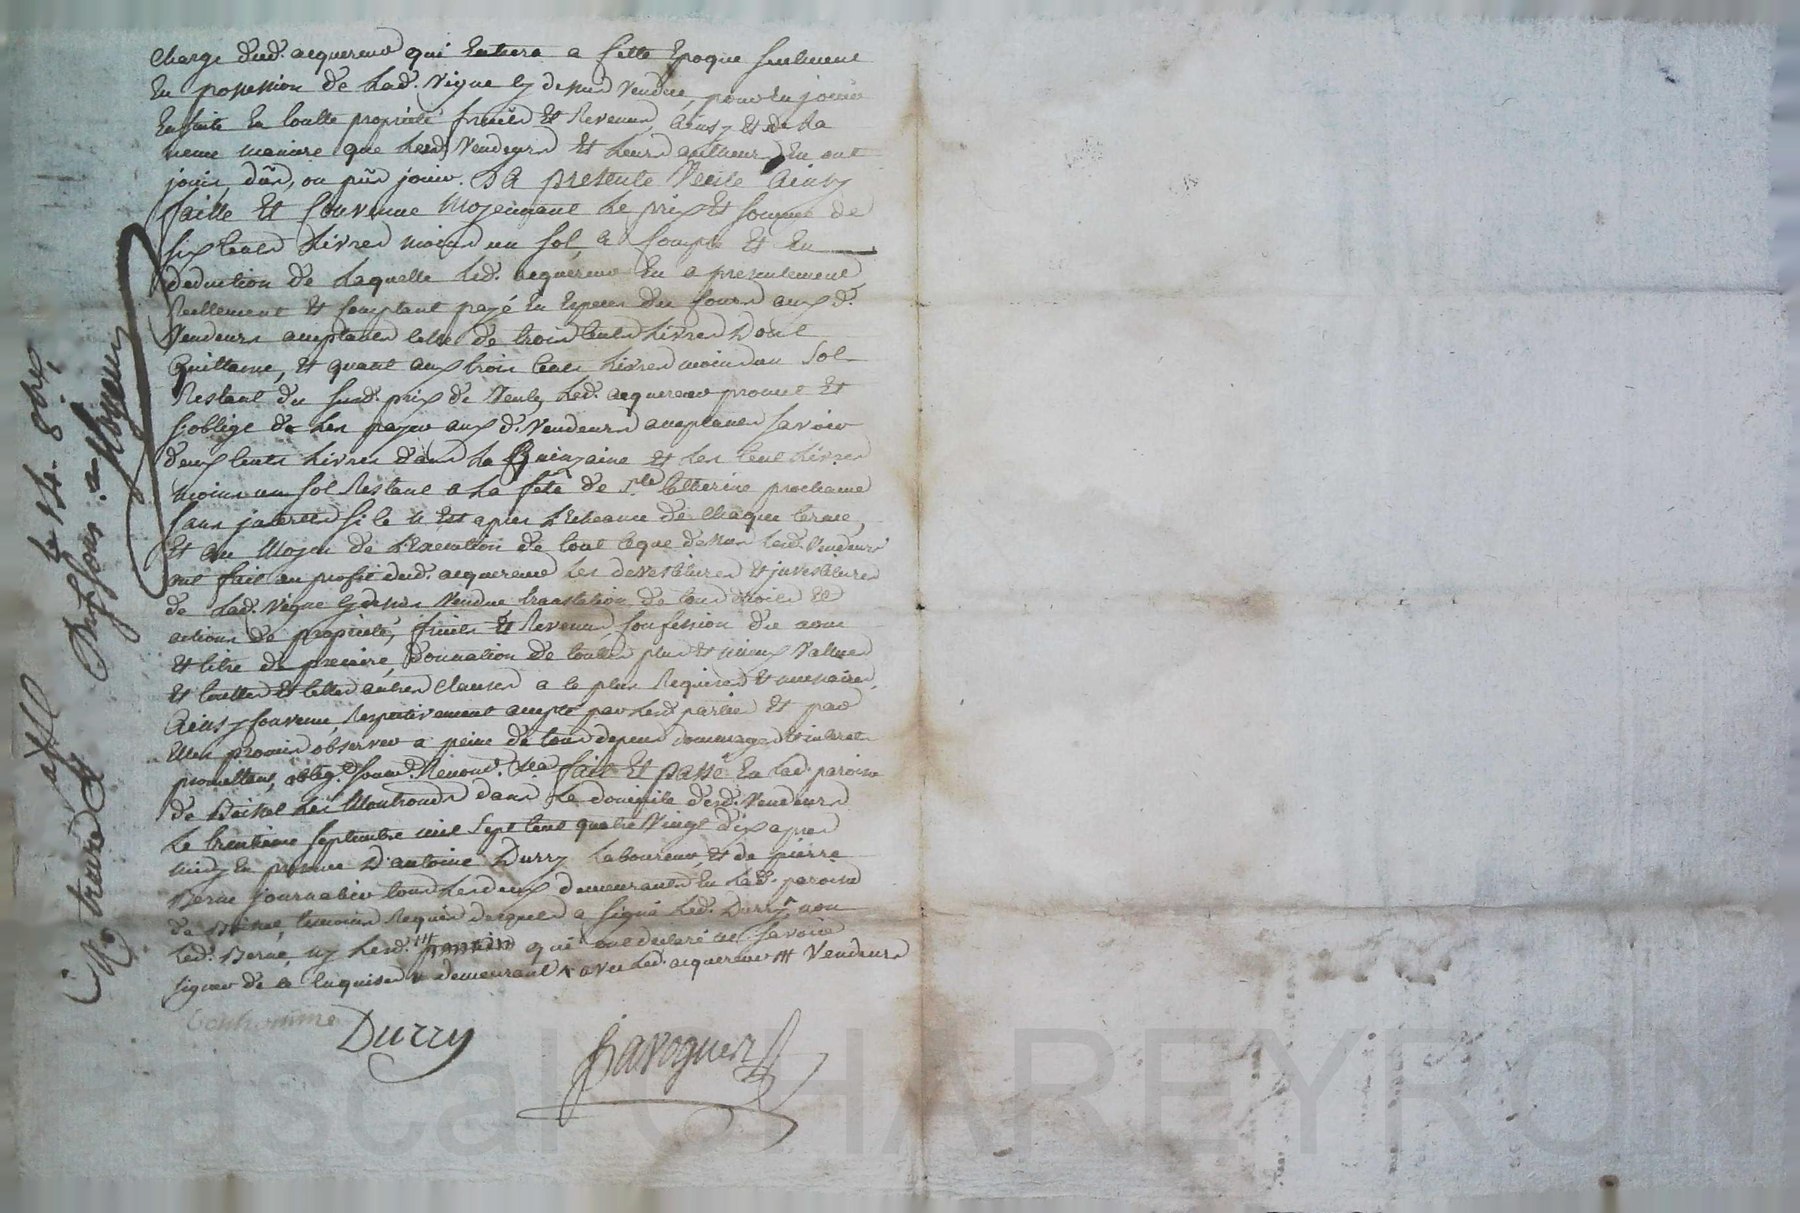 charge dud. acquereur qui Entrera a Cette Epoque seulement
En possession de Lad. Vigne cy dessus Vendue, pour En jouir
Ensuitte En toutte propriété fruits Et Revenus, Ainsy Et de La
meme maniere que Lesd. Vendeurs Et Leurs autheurs En ont
jouis, dûs, ou pûs jouir. La presente Vente Ainsy
faitte Et Convenue Moyennant Le prix Et somme de
six Cents Livres moins un sol, a Compte Et En
deduction de Laquelle Led. acquereur En a presentement
Reellement Et Comptant payé En Especes du Cours aux d.
Vendeurs acceptants Celle de trois Cents Livres Dont
Quittance, Et quant aux trois Cents Livres moins un Sol
Restant du susd. prix de Vente, Led. acquereur promet Et
s'oblige de Les payer aux d. Vendeurs acceptants savoir
deux Cents Livres dans La Quinzaine Et Les Cent Livres
moins un sol Restant a La fete de Ste Catherine prochaine
sans jnterets si ce n'Est apres L'Echeance de Chaque terme,
Et au Moyen de L'Execution de tout Ceque dessus Lesd. Vendeurs
ont fait au profit dud. acquereur Les devestitures Et jnvestitures
de Lad. Vigne Cy dessus Vendue translation de tous droits Et
actions de propriété, fruits Et Revenus, Confession du nom
Et titre de precaire, Donnation de touttes plus Et mieux Values
Et touttes Et telles autres Clauses a ce plus Requises Et necessaires,
Ainsy Convenu, Respectivement accepté par Lesd. parties Et par
Elles promis observer a peine de tous depens dommages Et interets
promettans, oblig. soum. Renonc. fait Et passé En Lad. paroisse
de Boisset Les Montronds dans Le domicile desd. Vendeurs
Le trentieme septembre mil sept Cent quatre Vingt dix apres
midy En presence D'antoine Durry Laboureur, Et de pierre
Berne journalier tous Lesdeux demeurants En Lad. paroisse
de Boisset, temoins Requis desquels a signé Led. Durry non
Led. Berne, ny Lesd. qui ont declaré ne savoir
signer de ce Enquis demeurant avec Led. acquereur Vendeurs
bonhomme
Durry
Javogues
Pascal CHAREYRON
le 14. 8bre.